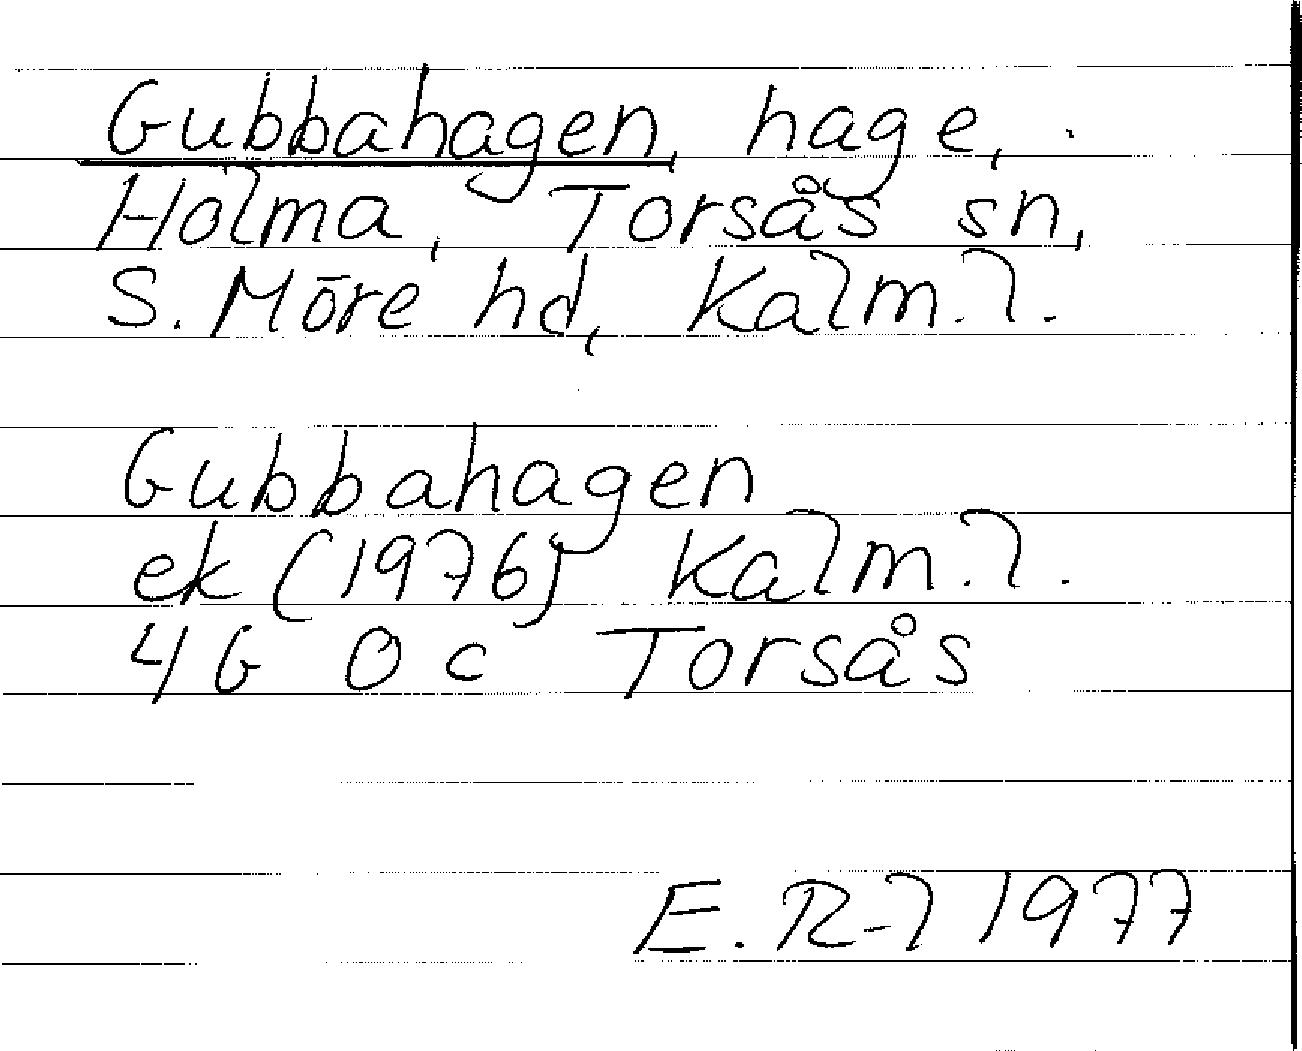 Gubbahagen, hage,
Holma, Torsås sn,
S. Möre hd, Kalm. l.
Gubbahagen
ek (1976) Kalm. l.
4G 0c Torsås
E. R-l 1977